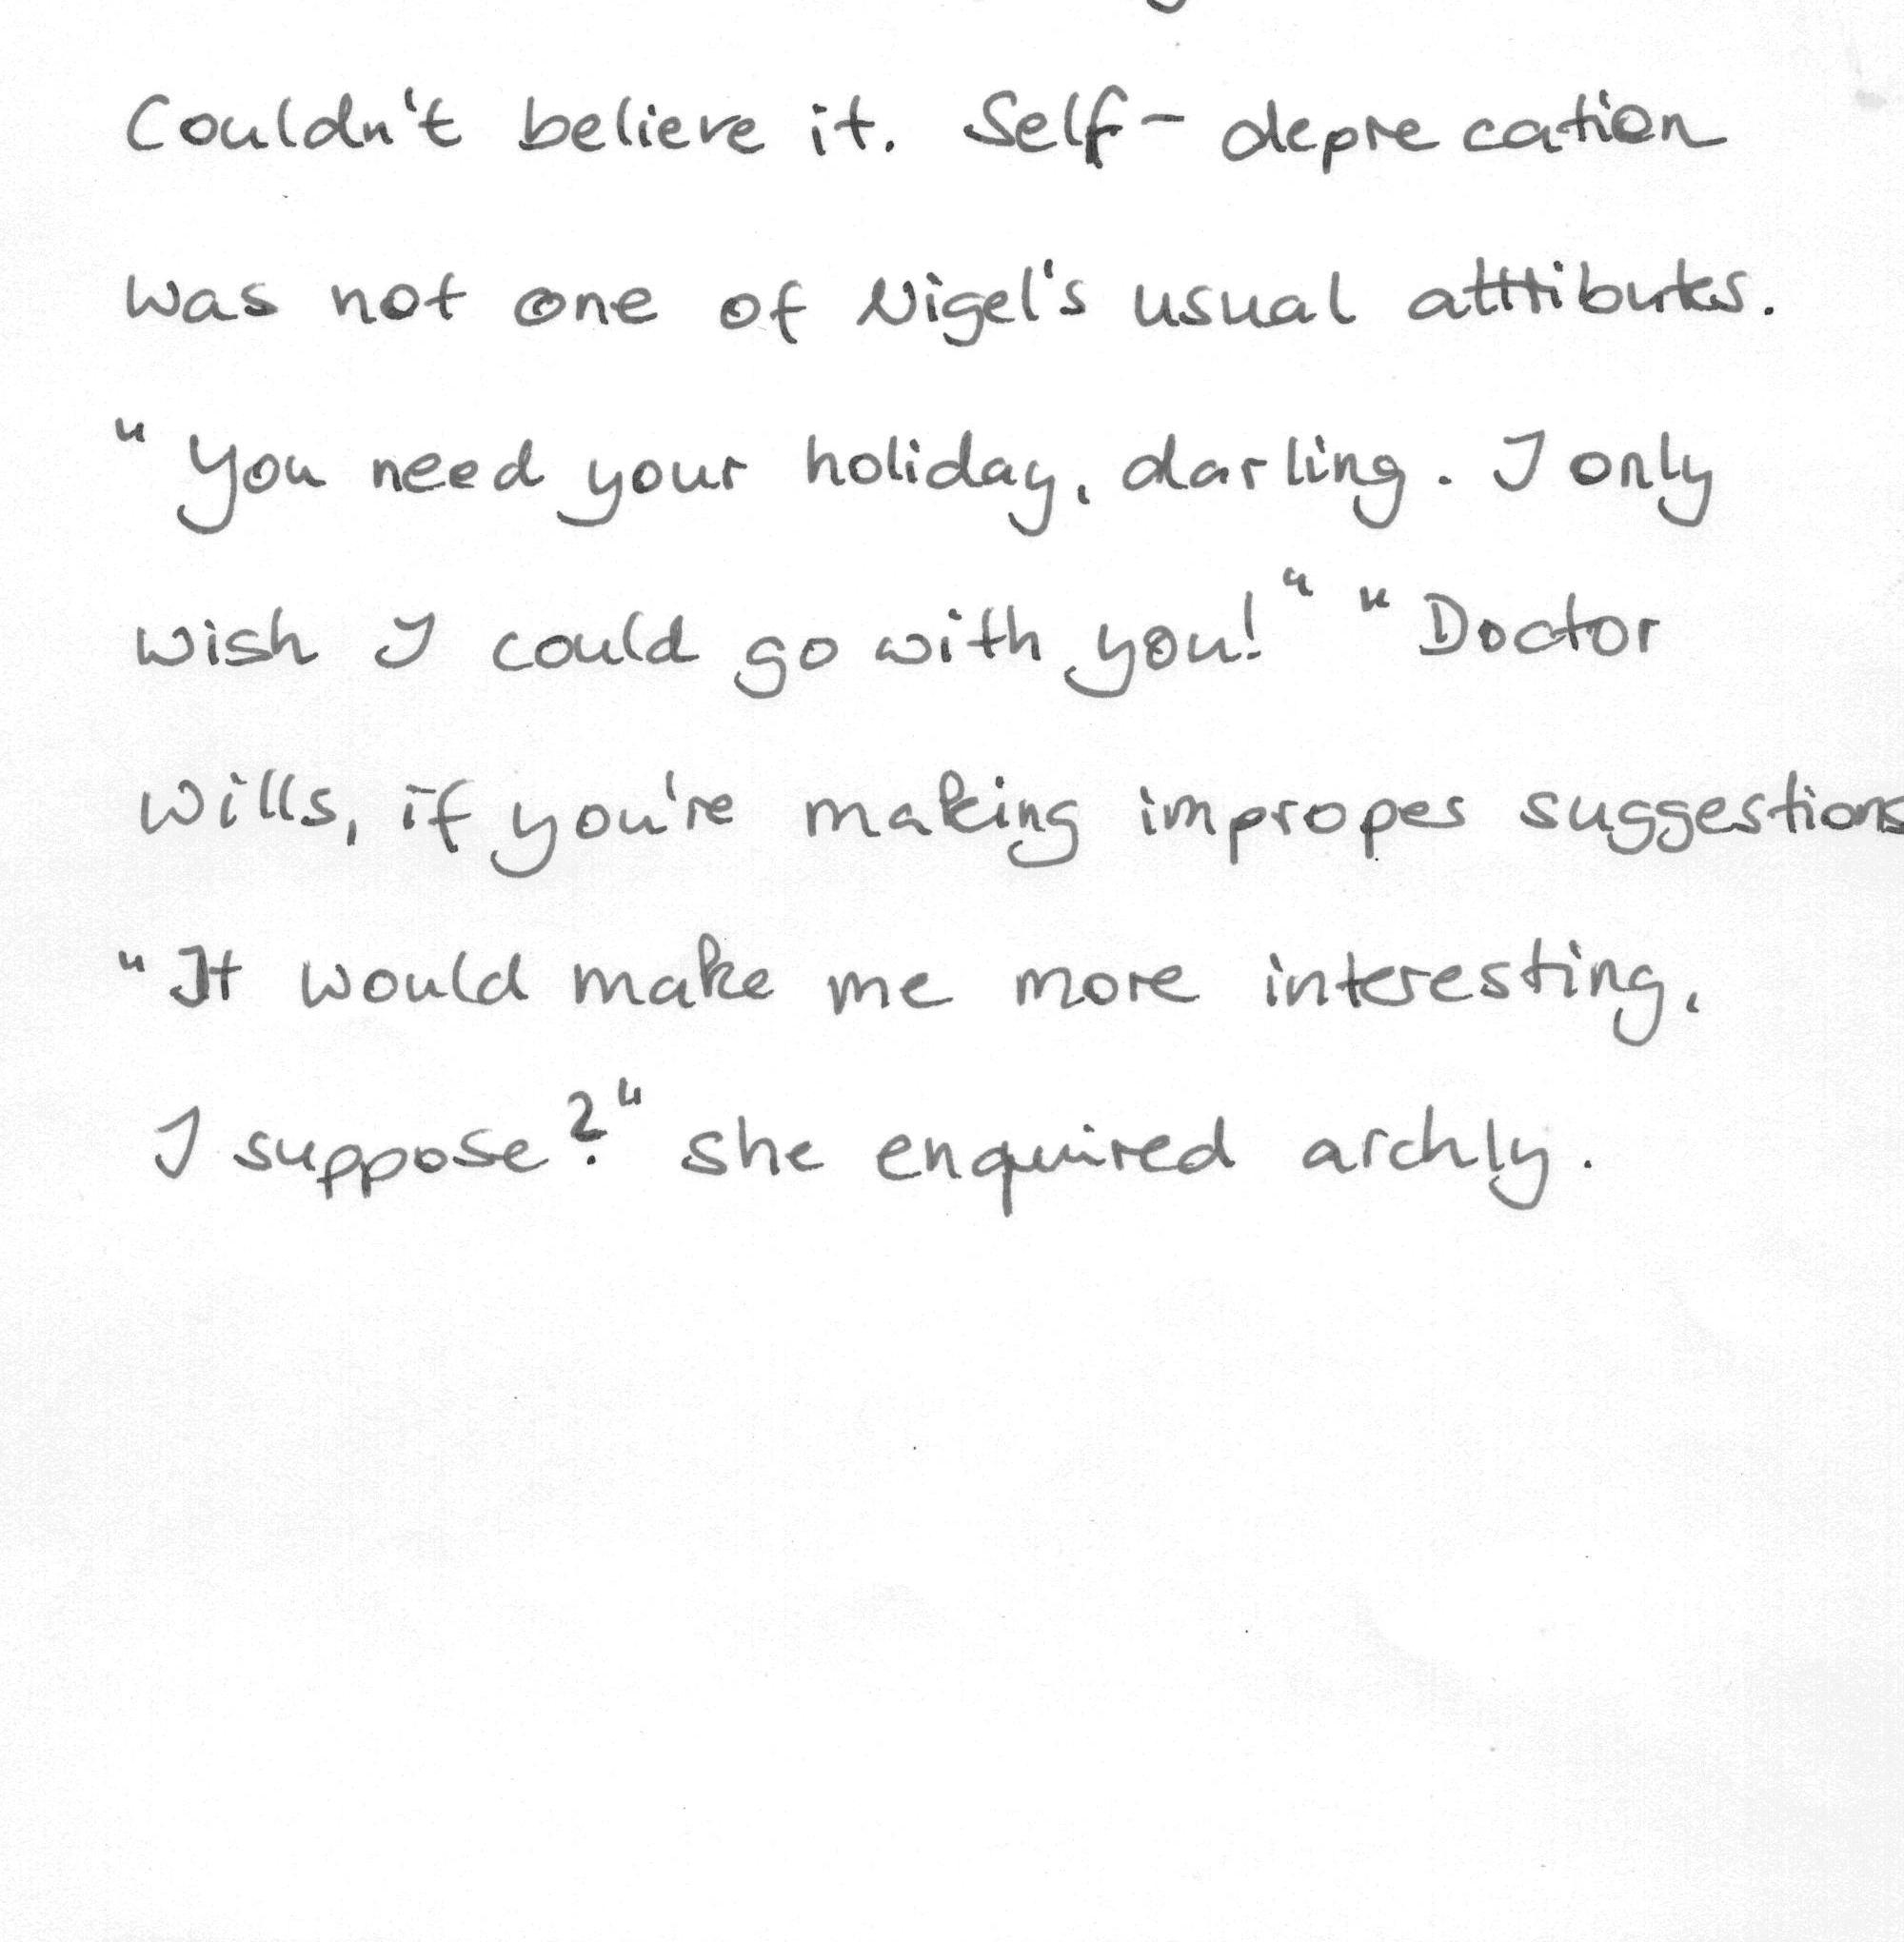 Couldn't believe it. Self-deprecation
was not one of Nigel's usual attributes.
"You need your holiday, darling. I only
wish I could go with you!" "Doctor
Wills, if you're making impropes suggestions
"It would make me more interesting,
I suppose?" she enquired archly.